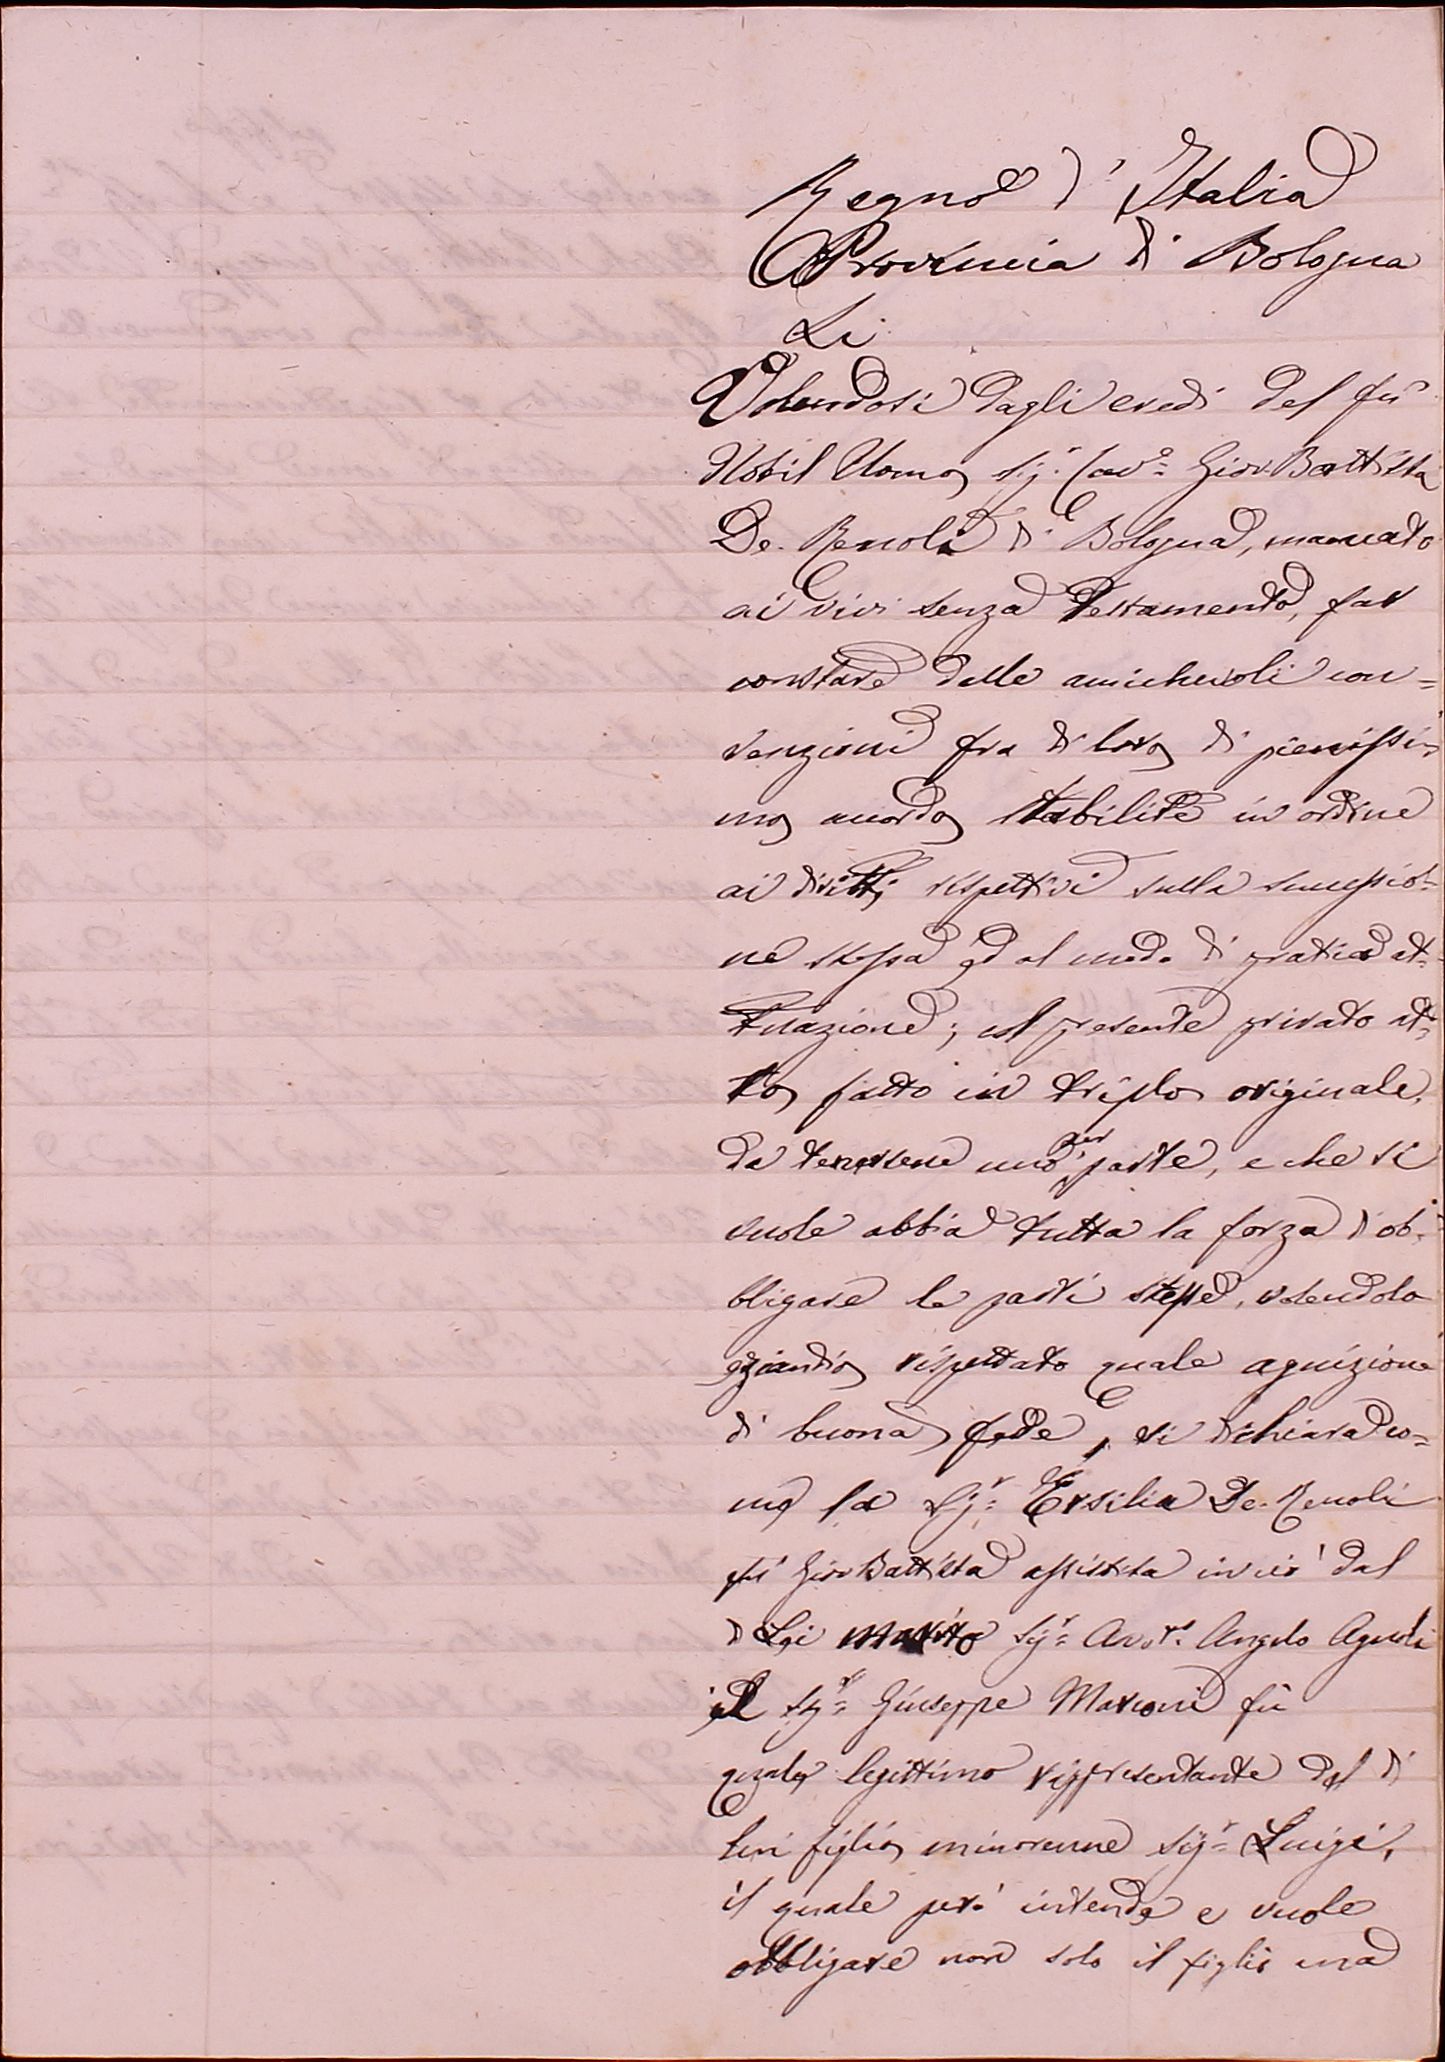 Regno d'Italia
Provincia di Bologna
Li
Volendosi dagli eredi del fù
Nobil Uomo Sig.r Cav.e Giov. Battista
De-Renoli di Bologna, mancato
ai vivi senza testamento, far
constare delle amichevoli con=
venzioni fra di loro di pienissi=
mo accordo stabilite in ordine
ai diritti rispettivi sulla successio=
ne stessa ed al modo di pratica at=
tuazione; col presente privato at=
to, fatto in triplo originale,
da tenersene uno per parte, e che si
vuole abbia tutta la forza d'ob=
bligare le parti stesse, volendolo
eziandio rispettato quale agnizione
di buona fede, si dichiara co=
me la Sig.r Ersilia De-Renoli
fù Giov Battista assistita in ciò dal
di Lei marito Sig.r Avv.to Angelo Agnoli
il Sig.r Giuseppe Marconi fù
quale legittimo rappresentante del di
lui figlio minorenne Sig.r Luigi,
il quale però intende e vuole
obbligare non solo il figlio ma